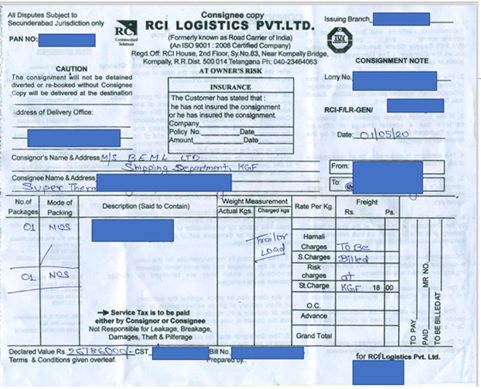 All Disputes Subject to
Secunderabad Jurisdiction only
PAN NO:
Consignee copy
RCI LOGISTICS PVT.LTD.
RCI
(Formerly known as Road Carrier of India)
(An ISO 9001 : 2008 Certified Company)
Regd.Off: RCI House, 2nd Floor, Sy.No.83, Near Kompally Bridge,
Kompally, R.R.Dist. 500 014 Telangana Ph: 040-23464063
AT OWNER'S RISK
Issuing Branch
CONSIGNMENT NOTE
Lorry No.
RCI-F/LR-GEN/
Date: 01/05/20
CAUTION
The consignment will not be detained
diverted or re-booked without Consignee
Copy will be delivered at the destination
Address of Delivery Office:
INSURANCE
The Customer has stated that :
he has not insured the consignment
or he has insured the consignment.
Company
Policy No. Date
Amount Date
Consignor's Name & Address M/S BEML LTD
Shipping Department, KGF
Consignee Name & Address
Super
From:
To:
No.of Packages
Mode of Packing
Description (Said to Contain)
Weight Measurement
Actual Kgs. Charged kgs
Rate Per Kg.
Freight
Rs. Ps.
01 NOS
Trailor
Load
01 NOS
Hamali Charges To Be
S.Charges Billed
Risk charges at
St.Charge KGF 18 00
O.C.
Advance
Grand Total
TO PAY
PAID MR NO.
TO BE BILLED AT
Service Tax is to be paid
either by Consignor or Consignee
Not Responsible for Leakage, Breakage,
Damages, Theft & Pilferage
Declared Value Rs. CST Bill No.
Terms & Conditions given overleaf. Prepared by.
for RCI Logistics Pvt. Ltd.